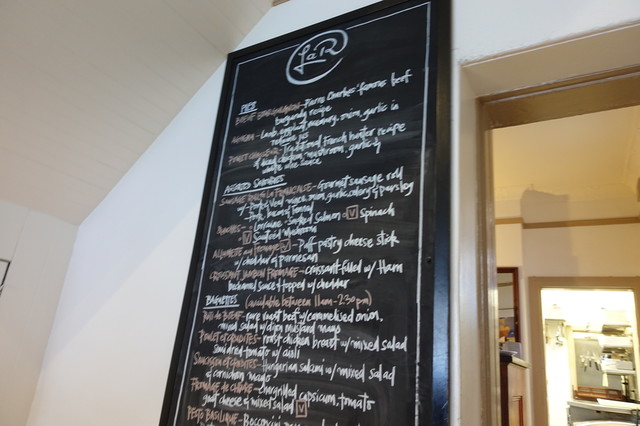 LaR
PIES
BOEUF BOURGUIGNON - Pierre Charles' famous beef
burgundy recipe
- Lamb, rosemary, onion, garlic in
jus
POULET CHASSEUR - Traditional French hunter recipe
of diced chicken, mushroom, garlic &
white wine sauce
ASSORTED SAVOURIES
SAUSAGE ROLL à la FRANCAISE - Gourmet sausage roll
w/ - Pork & Veal - onion, garlic, celery & parsley
- Pork, bacon & fennel
QUICHES - Lorraine - Smoked Salmon - V Spinach
- V Sauteed mushroom
ALLUMETTE au FROMAGE V - Puff pastry cheese stick
w/ cheddar & parmesan
CROISSANT JAMBON FROMAGE - croissant filled w/ Ham
bechamel sauce & topped w/ cheddar
BAGUETTES (available between 11am-2:30pm)
ROTI de BOEUF - rare roast beef w/ caramelised onion,
mixed salad w/ dijon mustard mayo
POULET et CRUDITES - roast chicken breast w/ mixed salad
semi dried tomato w/ aioli
SAUCISSON et CRUDITES - Hungarian salami w/ mixed salad
& cornichon mayo
FROMAGE de CHEVRE - Chargrilled capsicum, tomato
goat cheese & mixed salad V
PESTO BASILIQUE - Bocconcini